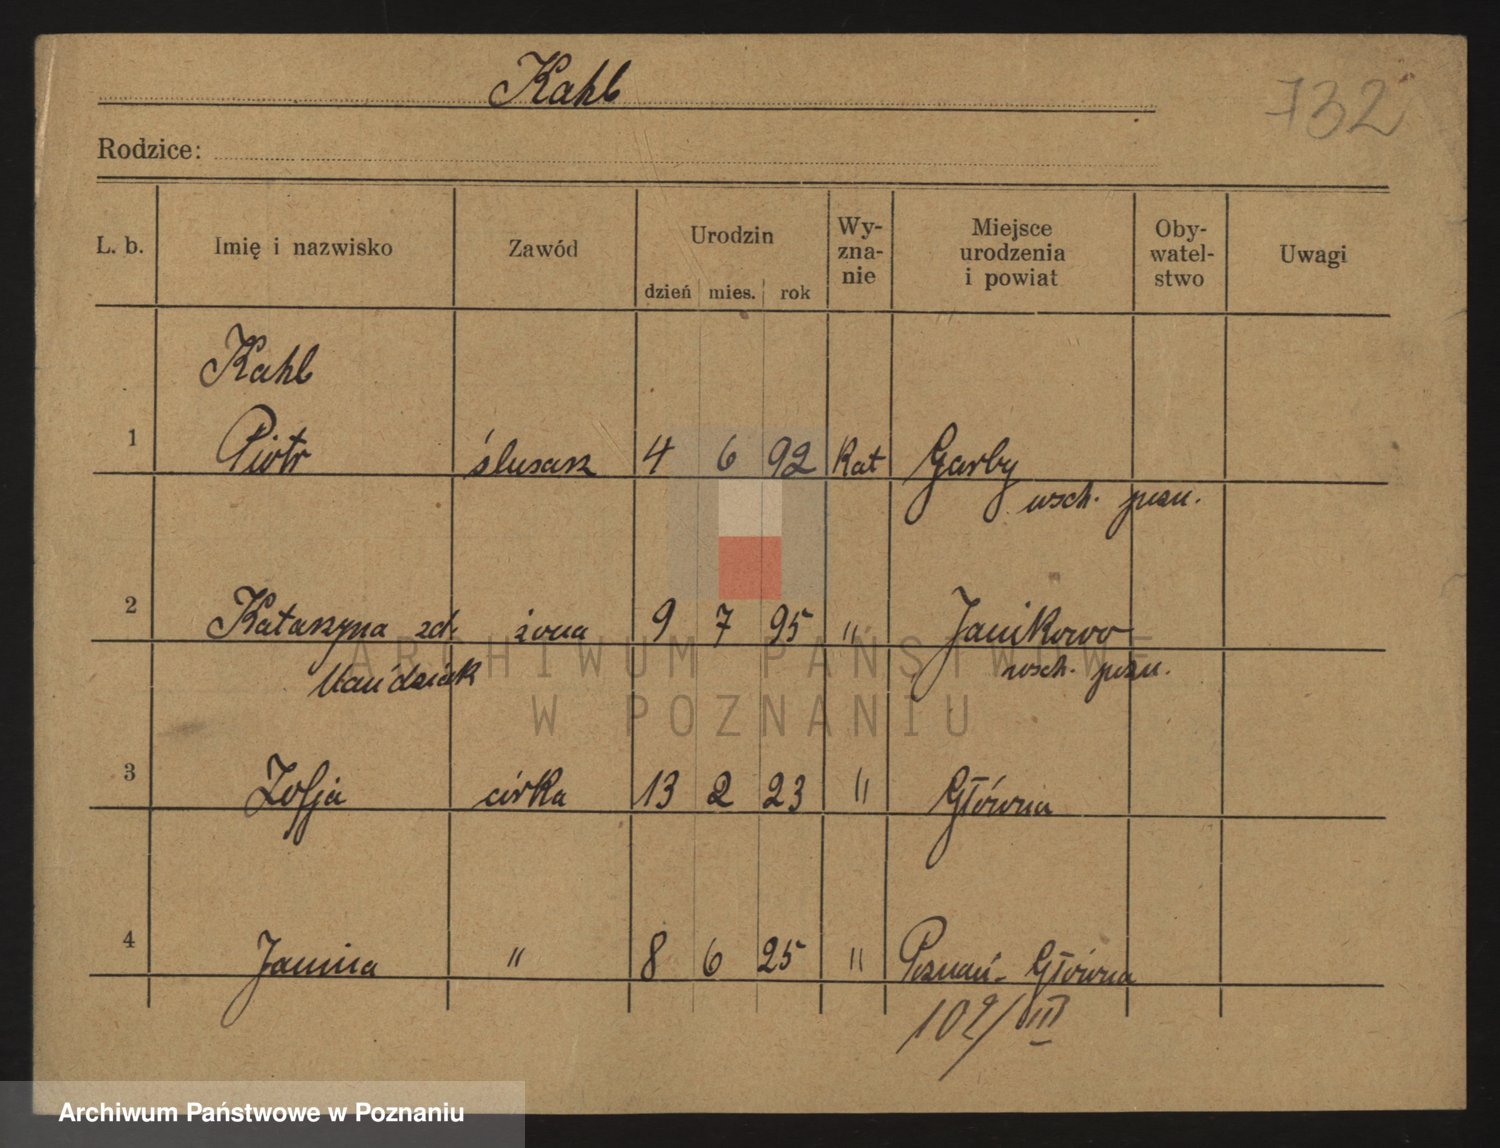 Kahl
732
Rodzice:
L. b. Imię i nazwisko Zawód Urodzin dzień mies. rok Wy-zna-nie Miejsce urodzenia i powiat Oby-watel-stwo Uwagi
Kahl
1 Piotr ślusarz 4 6 92 Kat Garby
wsch. pozn.
2 Katarzyna zd. żona 9 7 95 " Janikowo
wsch. pozn.
ARCHIWUM PAŃSTWOWE
W POZNANIU
3 Zofja córka 13 2 23 " Główna
4 Janina " 8 6 25 " Poznań-Główna
102/III
Archiwum Państwowe w Poznaniu